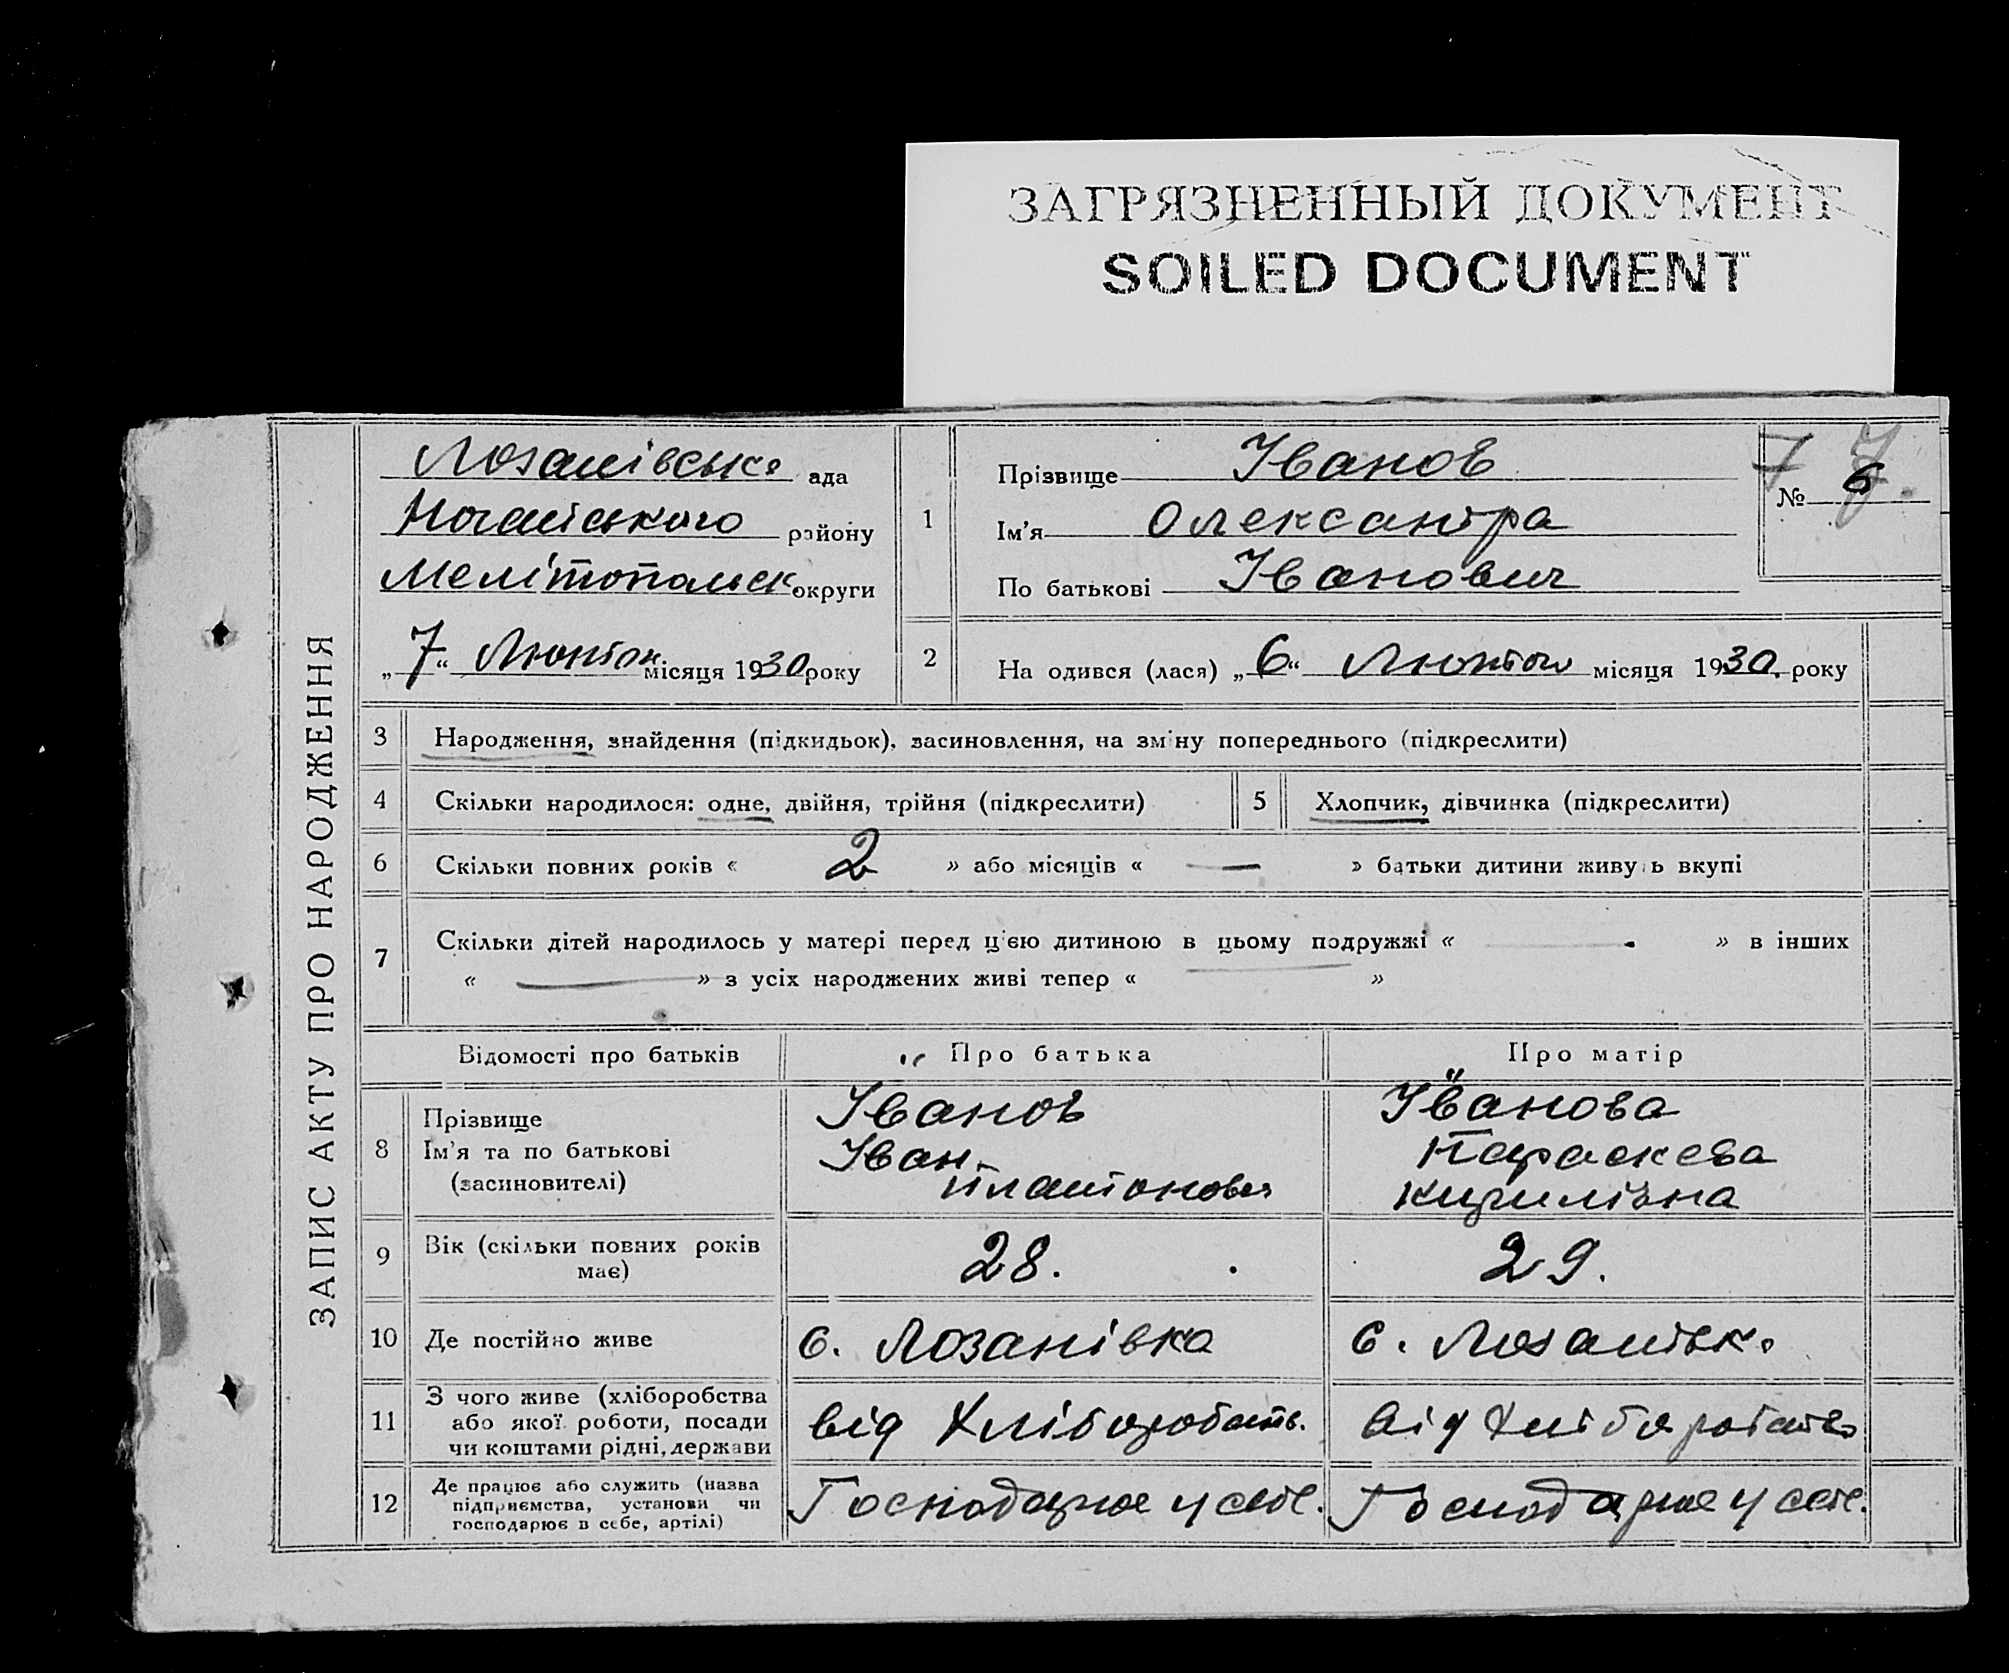 ЗАГРЯЗНЕННЫЙ ДОКУМЕНТ
SOILED DOCUMENT
ЗАПИС АКТУ ПРО НАРОДЖЕННЯ
Лозанівська ада
Ногайського району
Мелітопольськ округи
„7“ Лютого місяця 1930 року
1
Прізвище Іванов
Ім'я Олександра
По батькові Іванович
7 7
№ 6
2
На одився (лася) „6“ Лютого місяця 1930. року
3 Народження, знайдення (підкидьок), засиновлення, на зміну попереднього (підкреслити)
4 Скільки народилося: одне, двійня, трійня (підкреслити)
5 Хлопчик, дівчинка (підкреслити)
6 Скільки повних років « 2 » або місяців « — » батьки дитини живуть вкупі
7 Скільки дітей народилось у матері перед цією дитиною в цьому подружжі « — » в інших
« — » з усіх народжених живі тепер « — »
Відомості про батьків
Про батька
Про матір
8 Прізвище
Ім'я та по батькові
(засиновителі)
Іванов
Іван
Платонович
Іванова
Параскева
Кирилівна
9 Вік (скільки повних років
має)
28.
29.
10 Де постійно живе
с. Лозанівка
с. Лозанівка
11 З чого живе (хліборобства
або якої роботи, посади
чи коштами рідні, держави
від Хліборобств.
від Хліборобства
12 Де працює або служить (назва
підприємства, установи чи
господарює в себе, артілі)
Господарює у себе.
Господарює у себе.